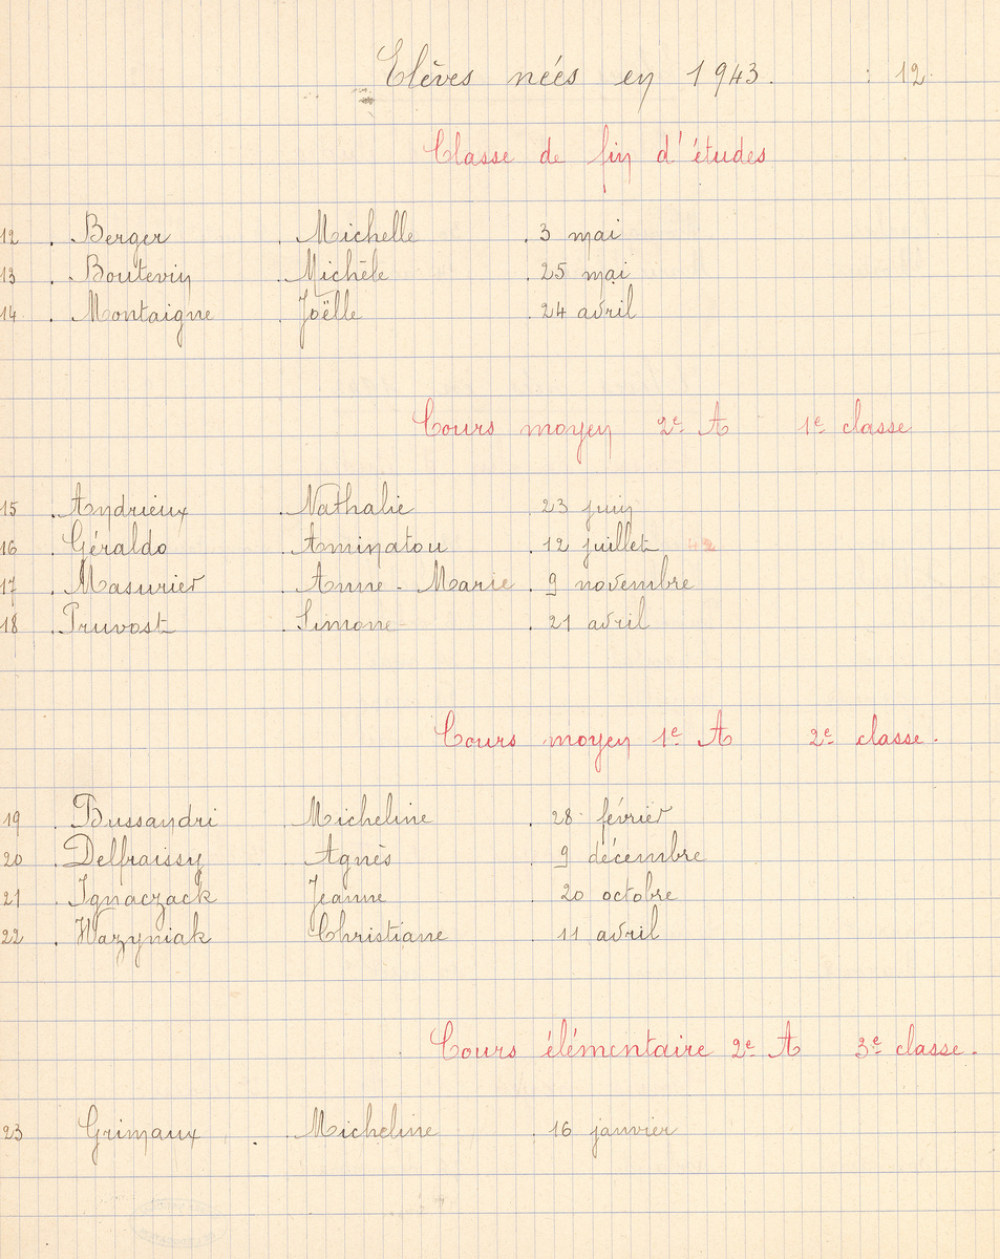 Elèves nées en 1943. : 12
Classe de fin d'études
12 . Berger . Michelle . 3 mai
13 . Boutevin . Michèle . 25 mai
14 . Montaigne . Joëlle . 24 avril
Cours moyen 2e A 1e classe
15 . Andrieux . Nathalie . 23 juin
16 . Géraldo . Aminatou . 12 juillet
17 . Masurier . Anne-Marie . 9 novembre
18 . Pruvost . Simone . 21 avril
Cours moyen 1e A 2e classe.
19 . Bussandri . Micheline . 28 février
20 . Delfraissy . Agnès 9 décembre
21 . Ignaczack . Jeanne 20 octobre
22 . Wazyniak . Christiane . 11 avril
Cours élémentaire 2e A 3e classe.
23 Grimaux . Micheline . 16 janvier